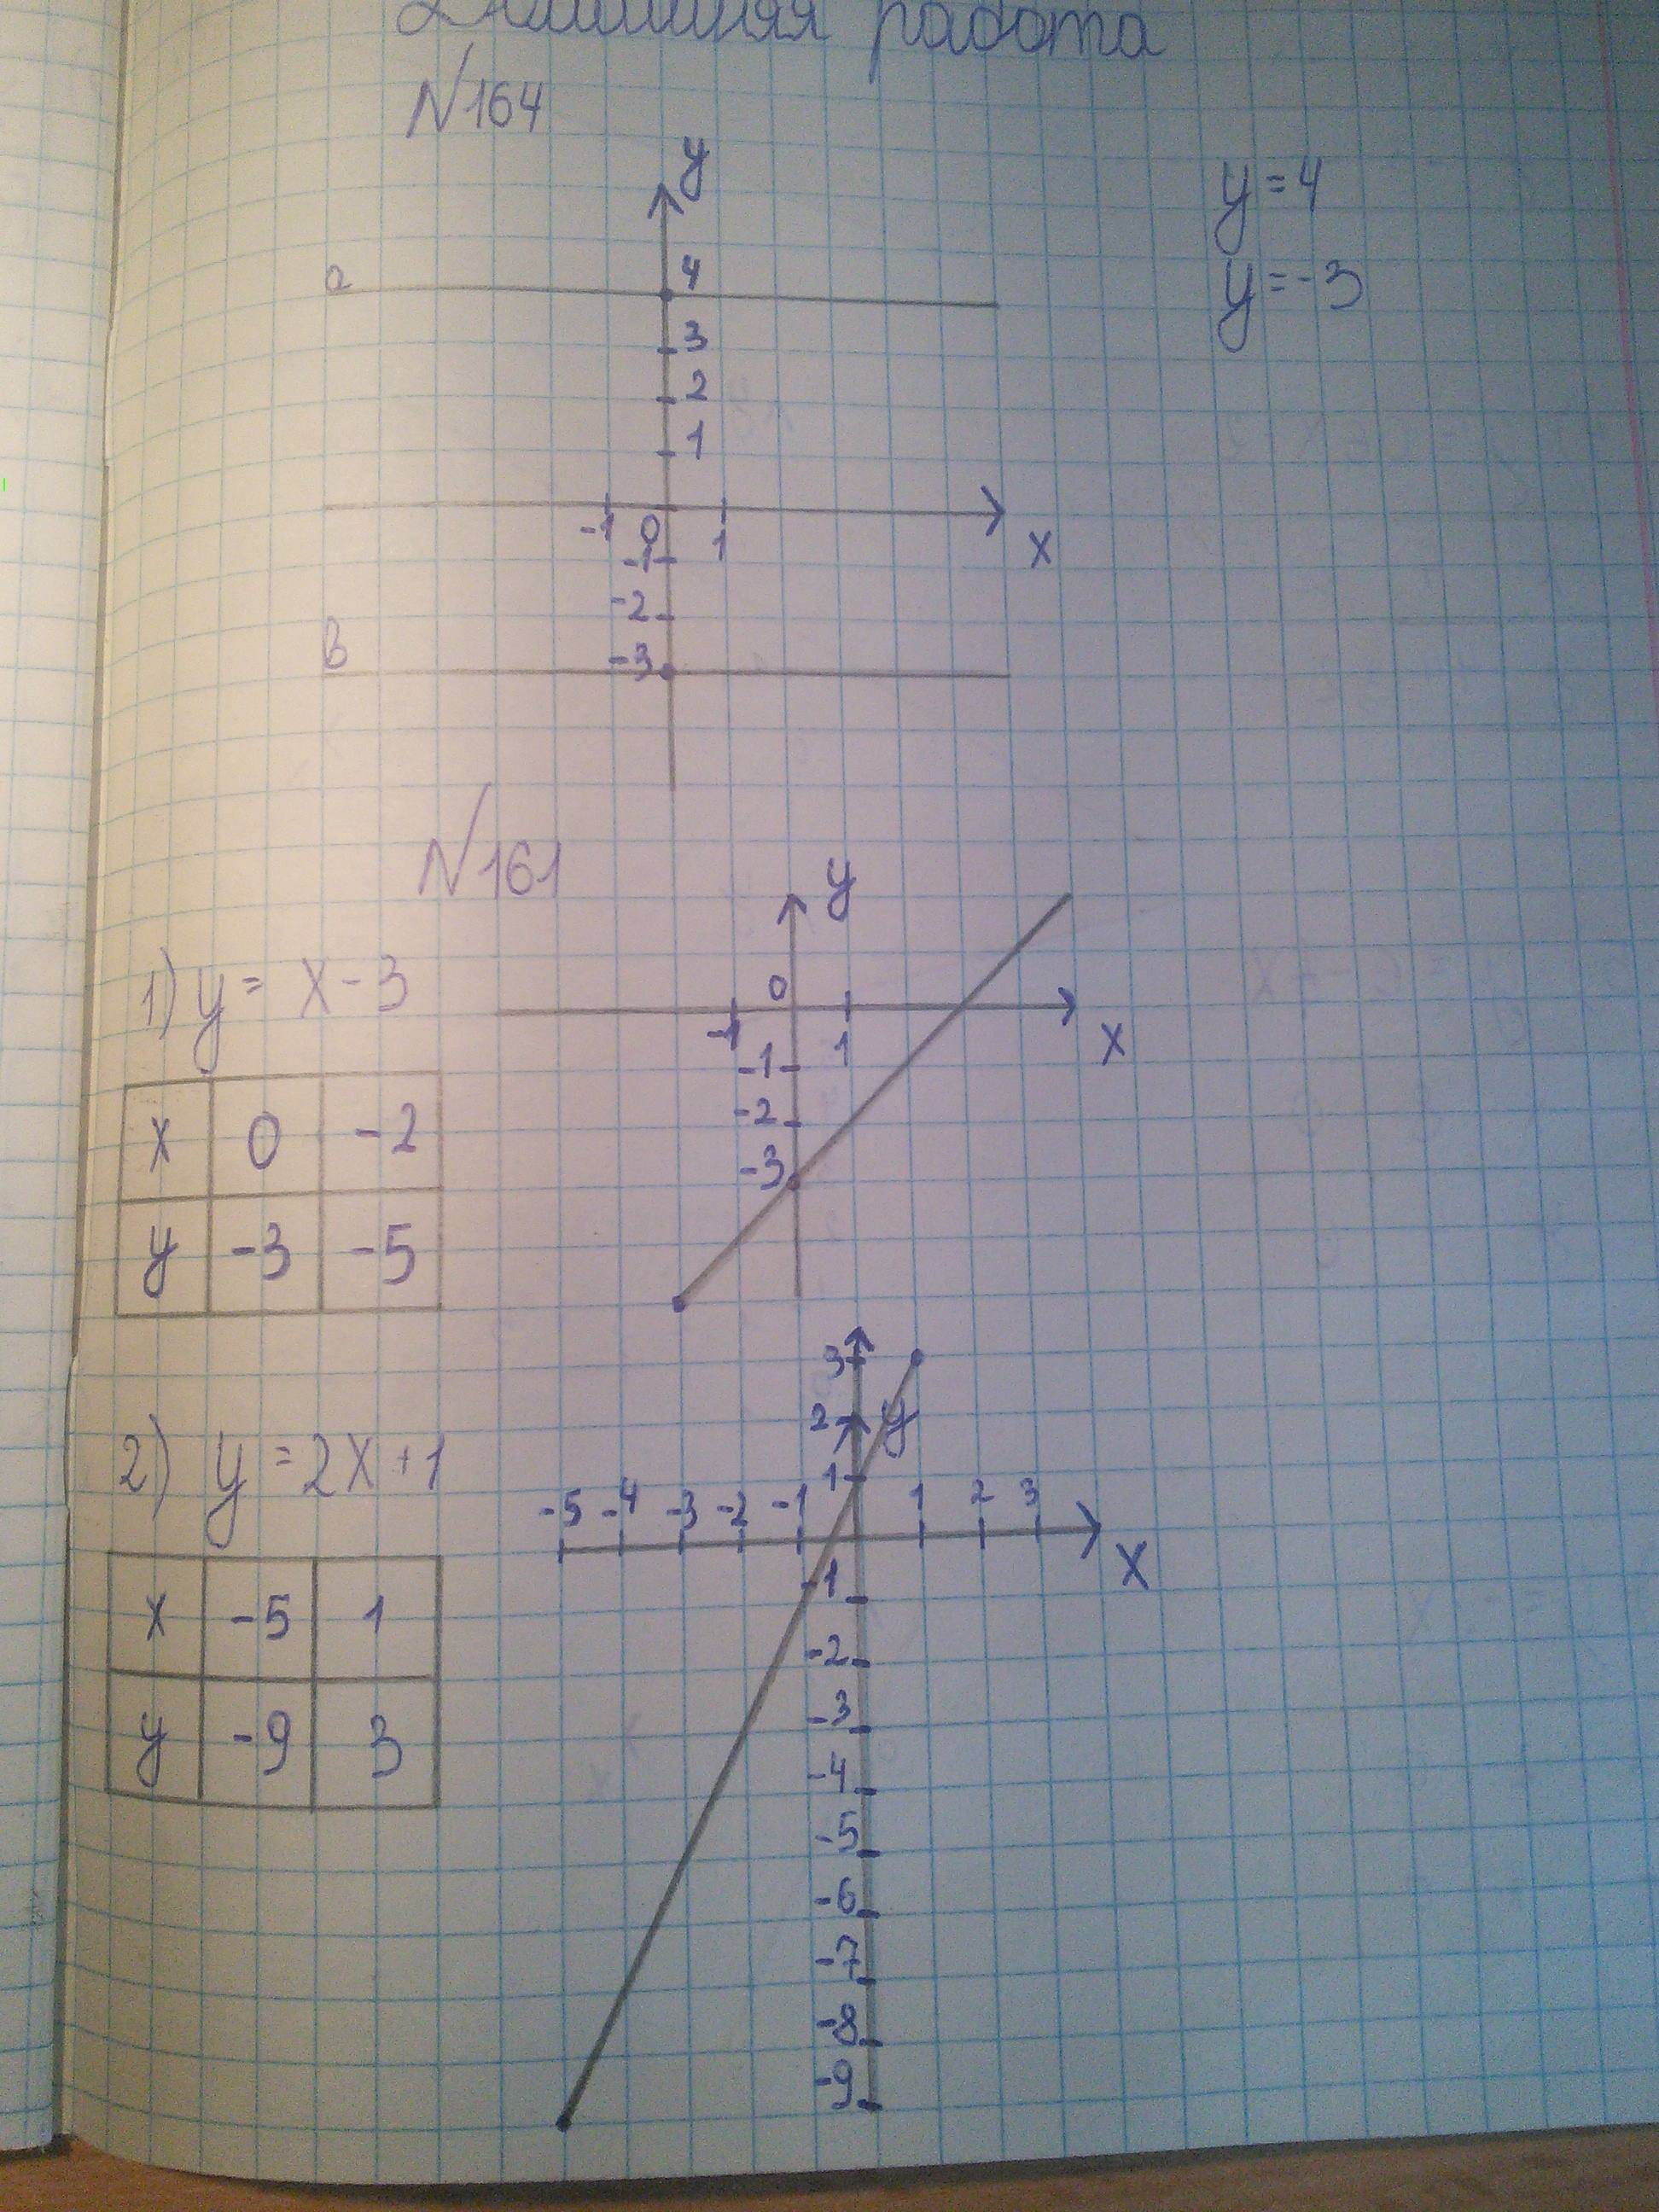 Домашняя работа
№164
y
y=4
a
4
y=-3
3
2
1
-1 0 1
x
-1
-2
b
-3
№161
y
1) y = x-3
0
-1 1
x
-1
x 0 -2
-2
-3
y -3 -5
3
2 y
2) y = 2x+1
1
-5 -4 -3 -2 -1 1 2 3
x
x -5 1
-1
-2
y -9 3
-3
-4
-5
-6
-7
-8
-9